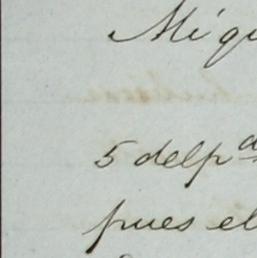 Mi qu
5 del pd
pues el